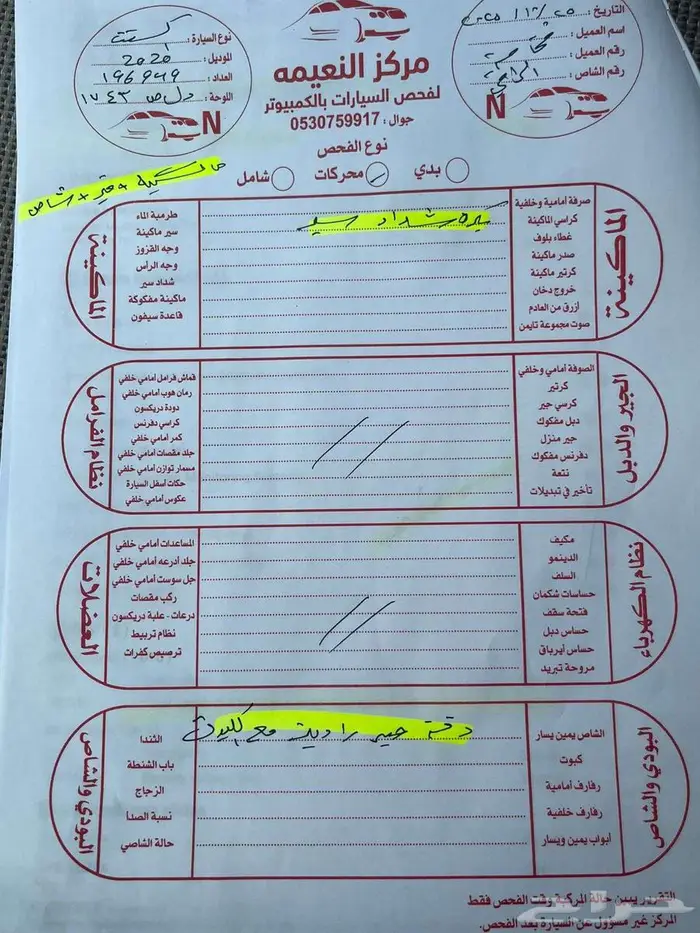 التاريخ: ٢٥ / ١٢ / ٢٠٢٥
اسم العميل:
رقم العميل:
رقم الشاص:
N
مركز النعيمه
لفحص السيارات بالكمبيوتر
جوال: 0530759917
نوع السيارة: اكسنت
الموديل: 2020
العداد: 196949
اللوحة: د ل ص ١٧٤٣
N
نوع الفحص
بدي
محركات
شامل
ماكينة + قير + شاص
الماكينة
صرفة أمامية وخلفية
كراسي الماكينة
غطاء بلوف
صدر ماكينة
كرتير ماكينة
خروج دخان
أزرق من العادم
صوت مجموعة تايمن
بكره شداد سير
طرمبة الماء
سير ماكينة
وجه القزوز
وجه الرأس
شداد سير
ماكينة مفكوكة
قاعدة سيفون
الماكينة
الجير والدبل
الصوفة أمامي وخلفي
كرتير
كرسي جير
دبل مفكوك
جير منزل
دفرنس مفكوك
نتعة
تأخير في تبديلات
قماش فرامل أمامي خلفي
رمان هوب أمامي خلفي
دودة دريكسون
كراسي دفرنس
كمر أمامي خلفي
جلد مقصات أمامي خلفي
مسمار توازن أمامي خلفي
حكات أسفل السيارة
عكوس أمامي خلفي
نظام الفرامل
نظام الكهرباء
مكيف
الدينمو
السلف
حساسات شكمان
فتحة سقف
حساس دبل
حساس أيرباق
مروحة تبريد
المساعدات أمامي خلفي
جلد أدرعه أمامي خلفي
جل سوست أمامي خلفي
ركب مقصات
درعات - علبة دريكسون
نظام تربيط
ترصيص كفرات
العضلات
البودي والشاص
الشاص يمين يسار
كبوت
رفارف أمامية
رفارف خلفية
أبواب يمين ويسار
دقة جسر راديتر مع
الثندا
باب الشنطة
الزجاج
نسبة الصدا
حالة الشاصي
البودي والشاص
التقرير يبين حالة المركبة وقت الفحص فقط
المركز غير مسؤول عن السيارة بعد الفحص.
حراج